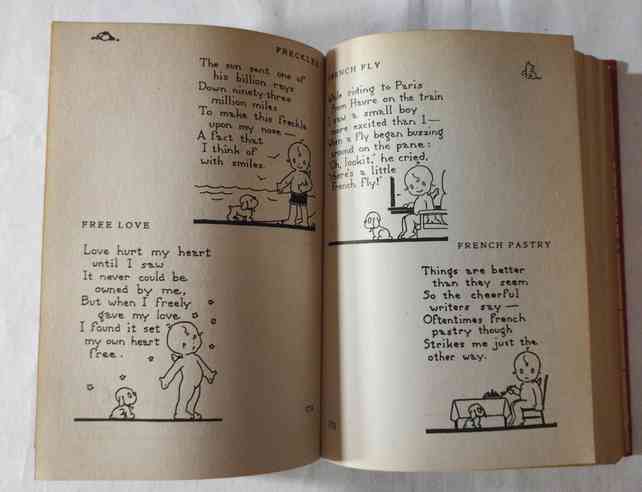 FRECKLES
The sun sent one of
his billion rays
Down ninety-three
million miles
To make this freckle
upon my nose —
A fact that
I think of
with smiles.
FREE LOVE
Love hurt my heart
until I saw
It never could be
owned by me,
But when I freely
gave my love
I found it set
my own heart
free.
FRENCH FLY
While riding to Paris
from Havre on the train
I saw a small boy
more excited than I —
When a fly began buzzing
around on the pane:
"Oh, lookit," he cried,
"there's a little
French fly!"
FRENCH PASTRY
Things are better
than they seem
So the cheerful
writers say —
Oftentimes French
pastry though
Strikes me just the
other way.